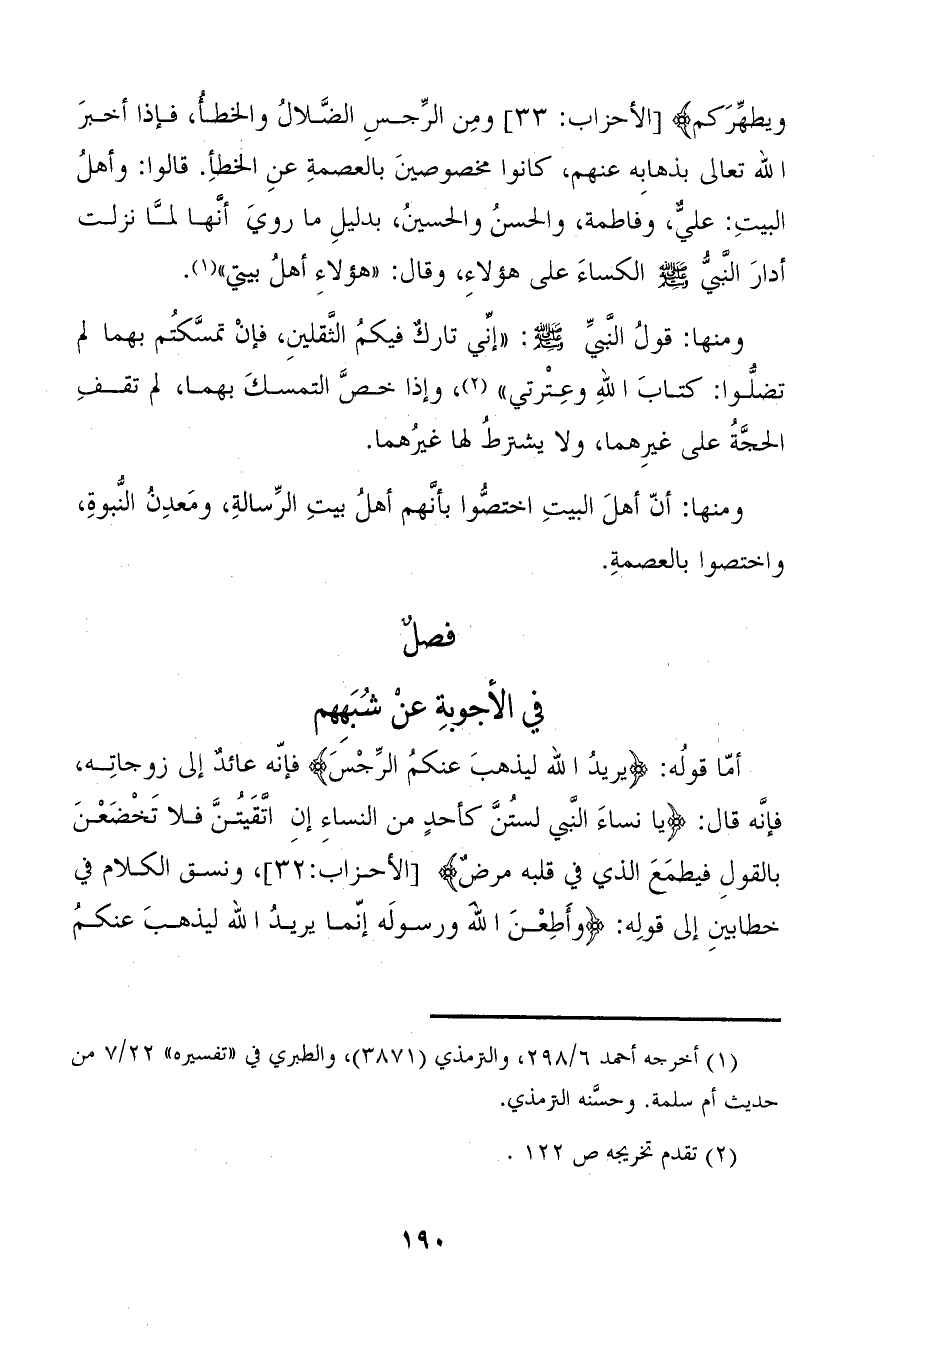 ويطهِّرَكم﴾ [الأحزاب: ٣٣] ومِن الرِّجـسِ الضَّـلالُ والخطـأُ، فـإذا أخـبرَ
الله تعالى بذهابِه عنهم، كانوا مخصوصينَ بالعصمةِ عنِ الخطأِ. قالوا: وأهلُ
البيتِ: عليٌّ، وفاطمة، والحسنُ والحسينُ، بدليلِ ما رويَ أنَّهـا لمـَّا نزلـت
أدارَ النَّبيُّ ﷺ الكساءَ على هؤلاءِ، وقال: «هؤلاءِ أهلُ بيتي»(١).
ومنها: قولُ النَّبيِّ ﷺ: «إنِّي تاركٌ فيكمُ الثَّقلينِ، فإنْ تمسَّكتُم بهما لم
تضلُّـوا: كتـابَ اللهِ وعِـتْرتي» (٢)، وإذا خـصَّ التمسـكَ بهمـا، لم تقـفِ
الحجَّةُ على غيرِهما، ولا يشترطُ لها غيرُهما.
ومنها: أنّ أهلَ البيتِ اختصُّوا بأنَّهم أهلُ بيتِ الرِّسالةِ، ومَعدِنُ النُّبوةِ،
واختصوا بالعصمةِ.
فصلٌ
في الأجوبةِ عنْ شُبَهِهم
أمّا قولُه: ﴿يريدُ الله ليذهبَ عنكمُ الرِّجْسَ﴾ فإنّه عائدٌ إلى زوجاتِـه،
فإنَّه قال: ﴿يا نساءَ النَّبي لستُنَّ كأحدٍ من النساءِ إنِ اتَّقَيتُـنَّ فـلا تَخْضَعْـنَ
بالقولِ فيطمَعَ الذي في قلبه مرضٌ﴾ [الأحـزاب:٣٢]، ونسـق الكـلام في
خطابينِ إلى قولِه: ﴿وأَطِعْـنَ اللهَ ورسـولَه إنّمـا يريـدُ الله ليذهـبَ عنكـمُ
(١) أخرجه أحمد ٢٩٨/٦، والترمذي (٣٨٧١)، والطبري في «تفسيره» ٧/٢٢ من
حديث أم سلمة. وحسَّنه الترمذي.
(٢) تقدم تخريجه ص ١٢٢ .
١٩٠